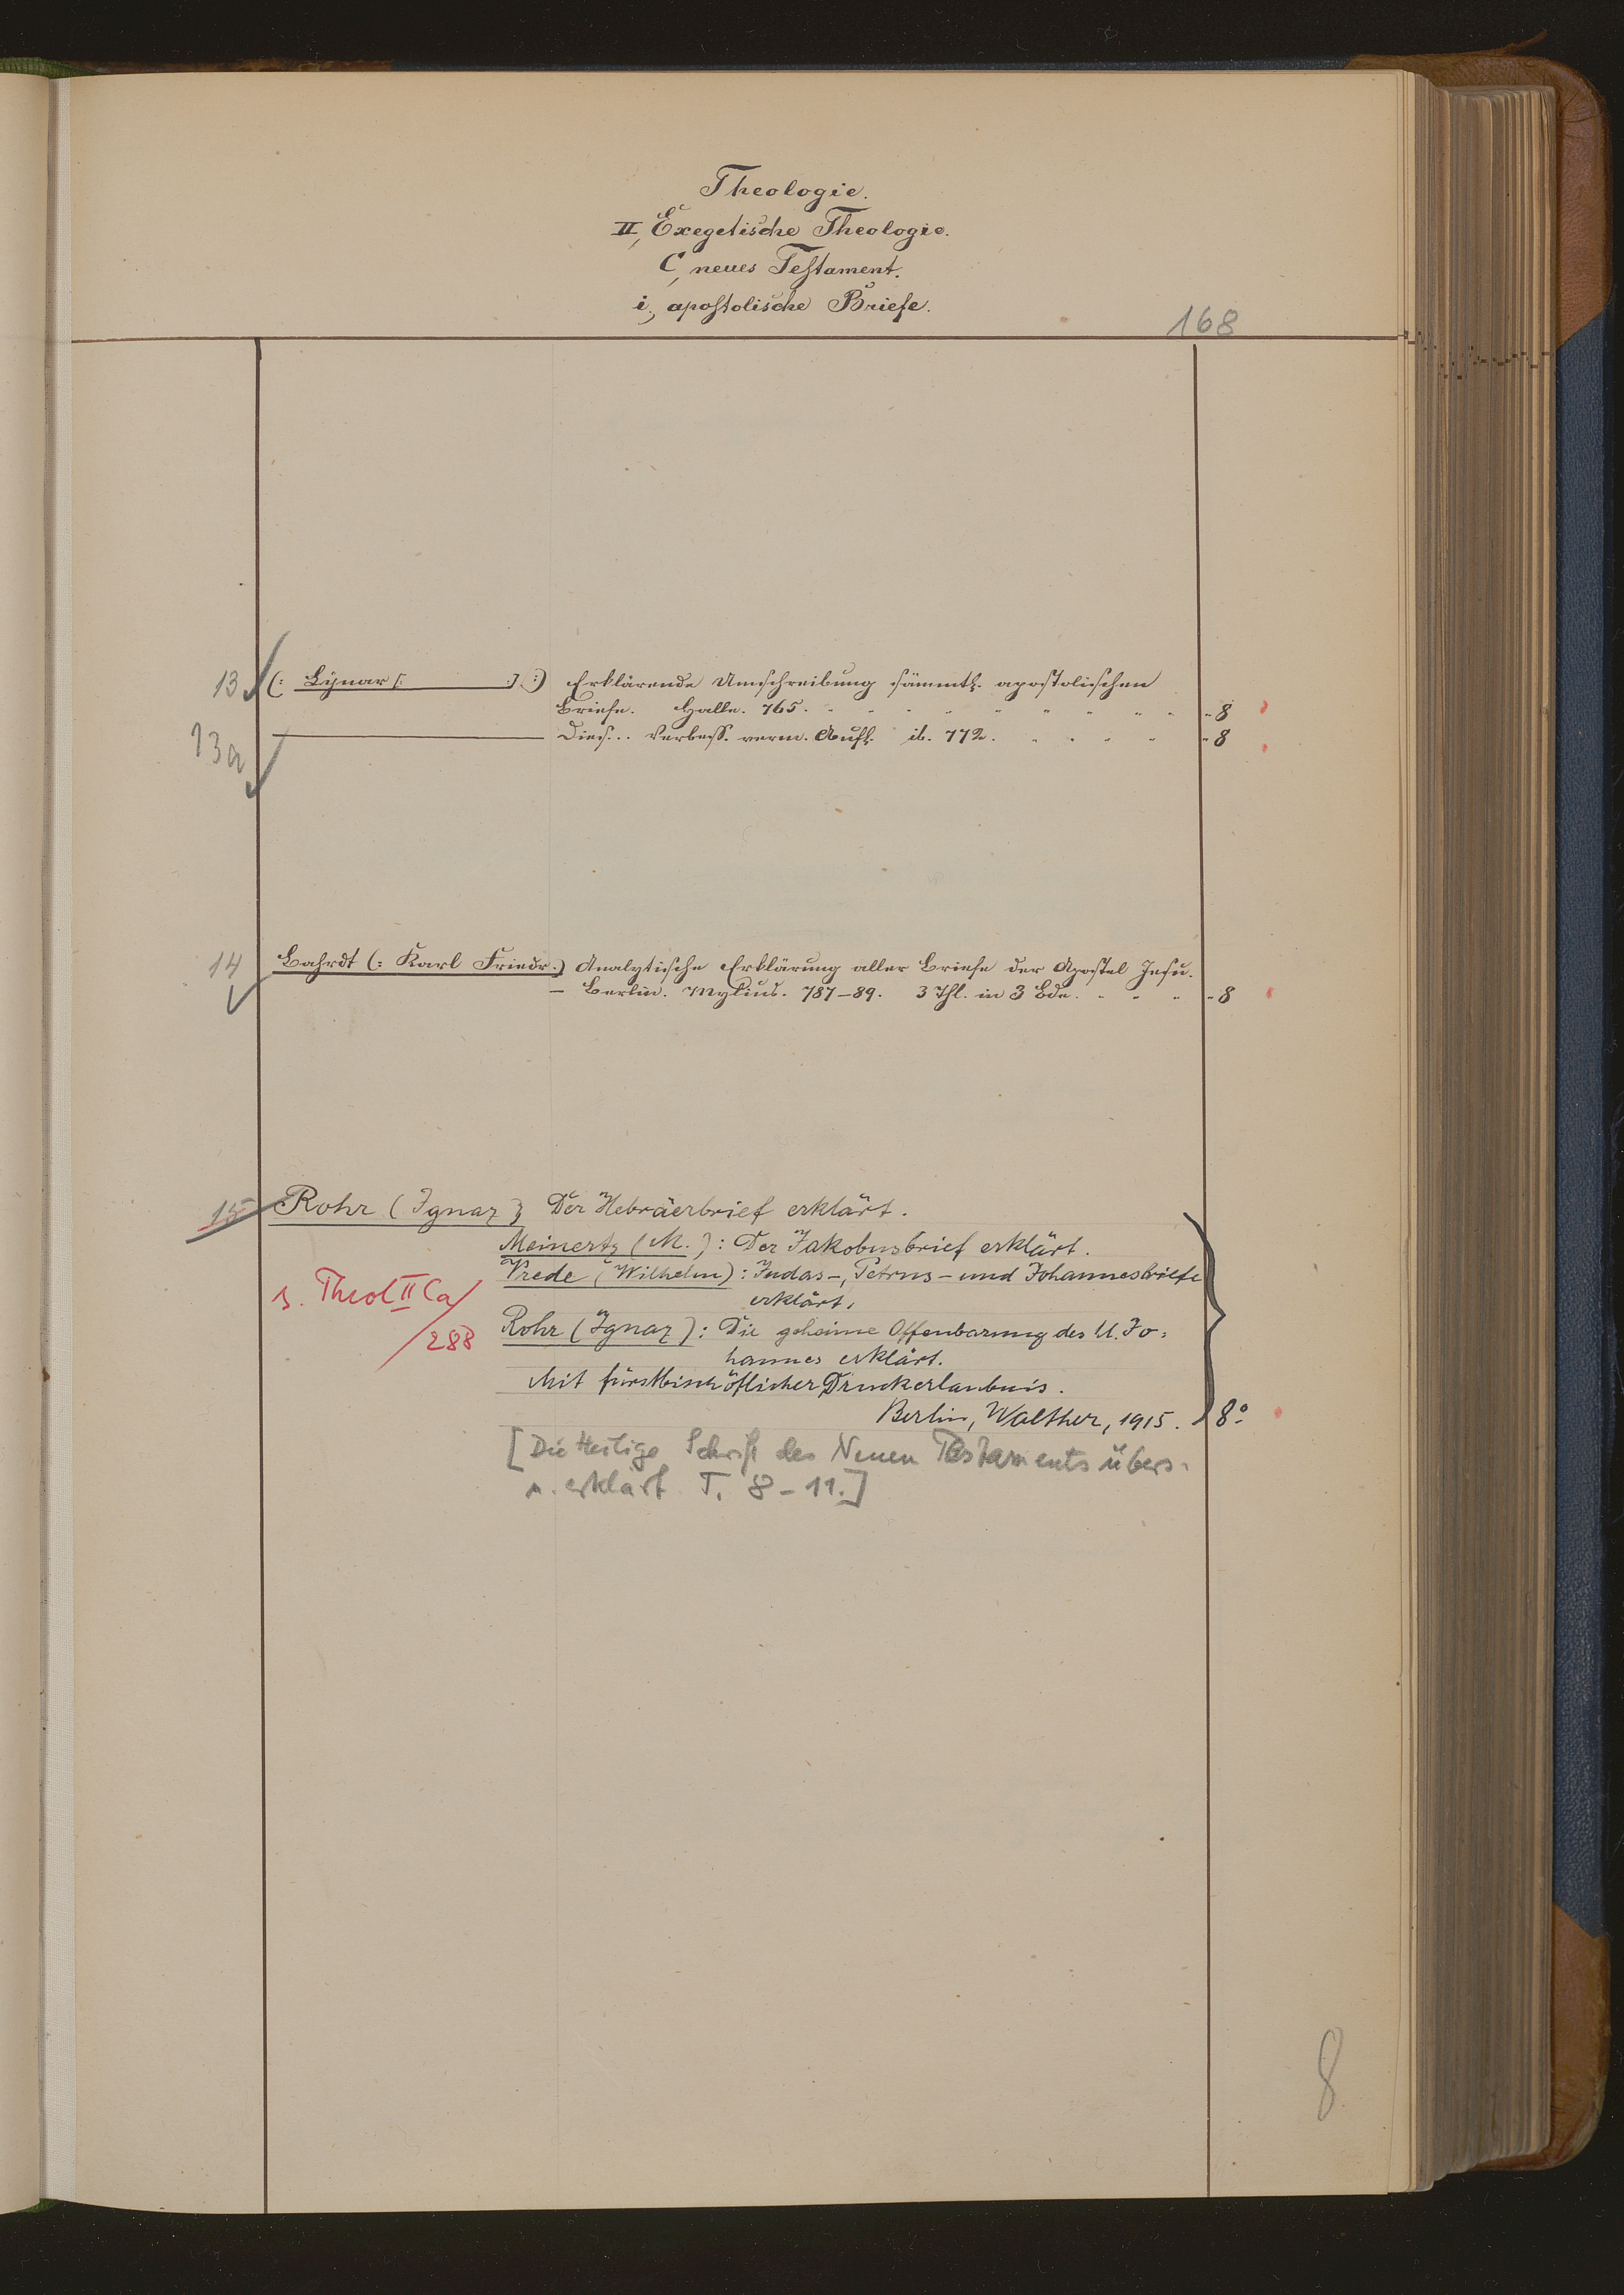 Theologie.
II, Exegetische Theologie.
C, neues Testament.
i., apostolische Briefe.
168
13 (: Lynar [: :] :) Erklärende Umschreibung sämmtl. apostolischen
Briefe. Halle. 765. " 8
13a Dies.. Verbess. verm. Aufl. ib. 772. " 8
14 Bahrdt (: Karl Friedr.) Analytische Erklärung aller Briefe der Apostel Jesu.
– Berlin. Mylius. 787–89. 3 Thl. in 3 Bde. " 8
15 Rohr (Ignaz) Der Hebräerbrief erklärt.
Meinertz (M.): Der Jakobusbrief erklärt.
Vrede (Wilhelm): Judas-, Petrus- und Johannesbriefe
erklärt.
s. Theol II Ca/
/288
Rohr (Ignaz): Die geheime Offenbarung des hl. Jo=
hannes erklärt.
Mit fürstbischöflicher Druckerlaubnis.
Berlin, Walther, 1915. 8°
[Die Heilige Schrift des Neuen Testaments übers.
u. erklärt T. 8–11.]
8